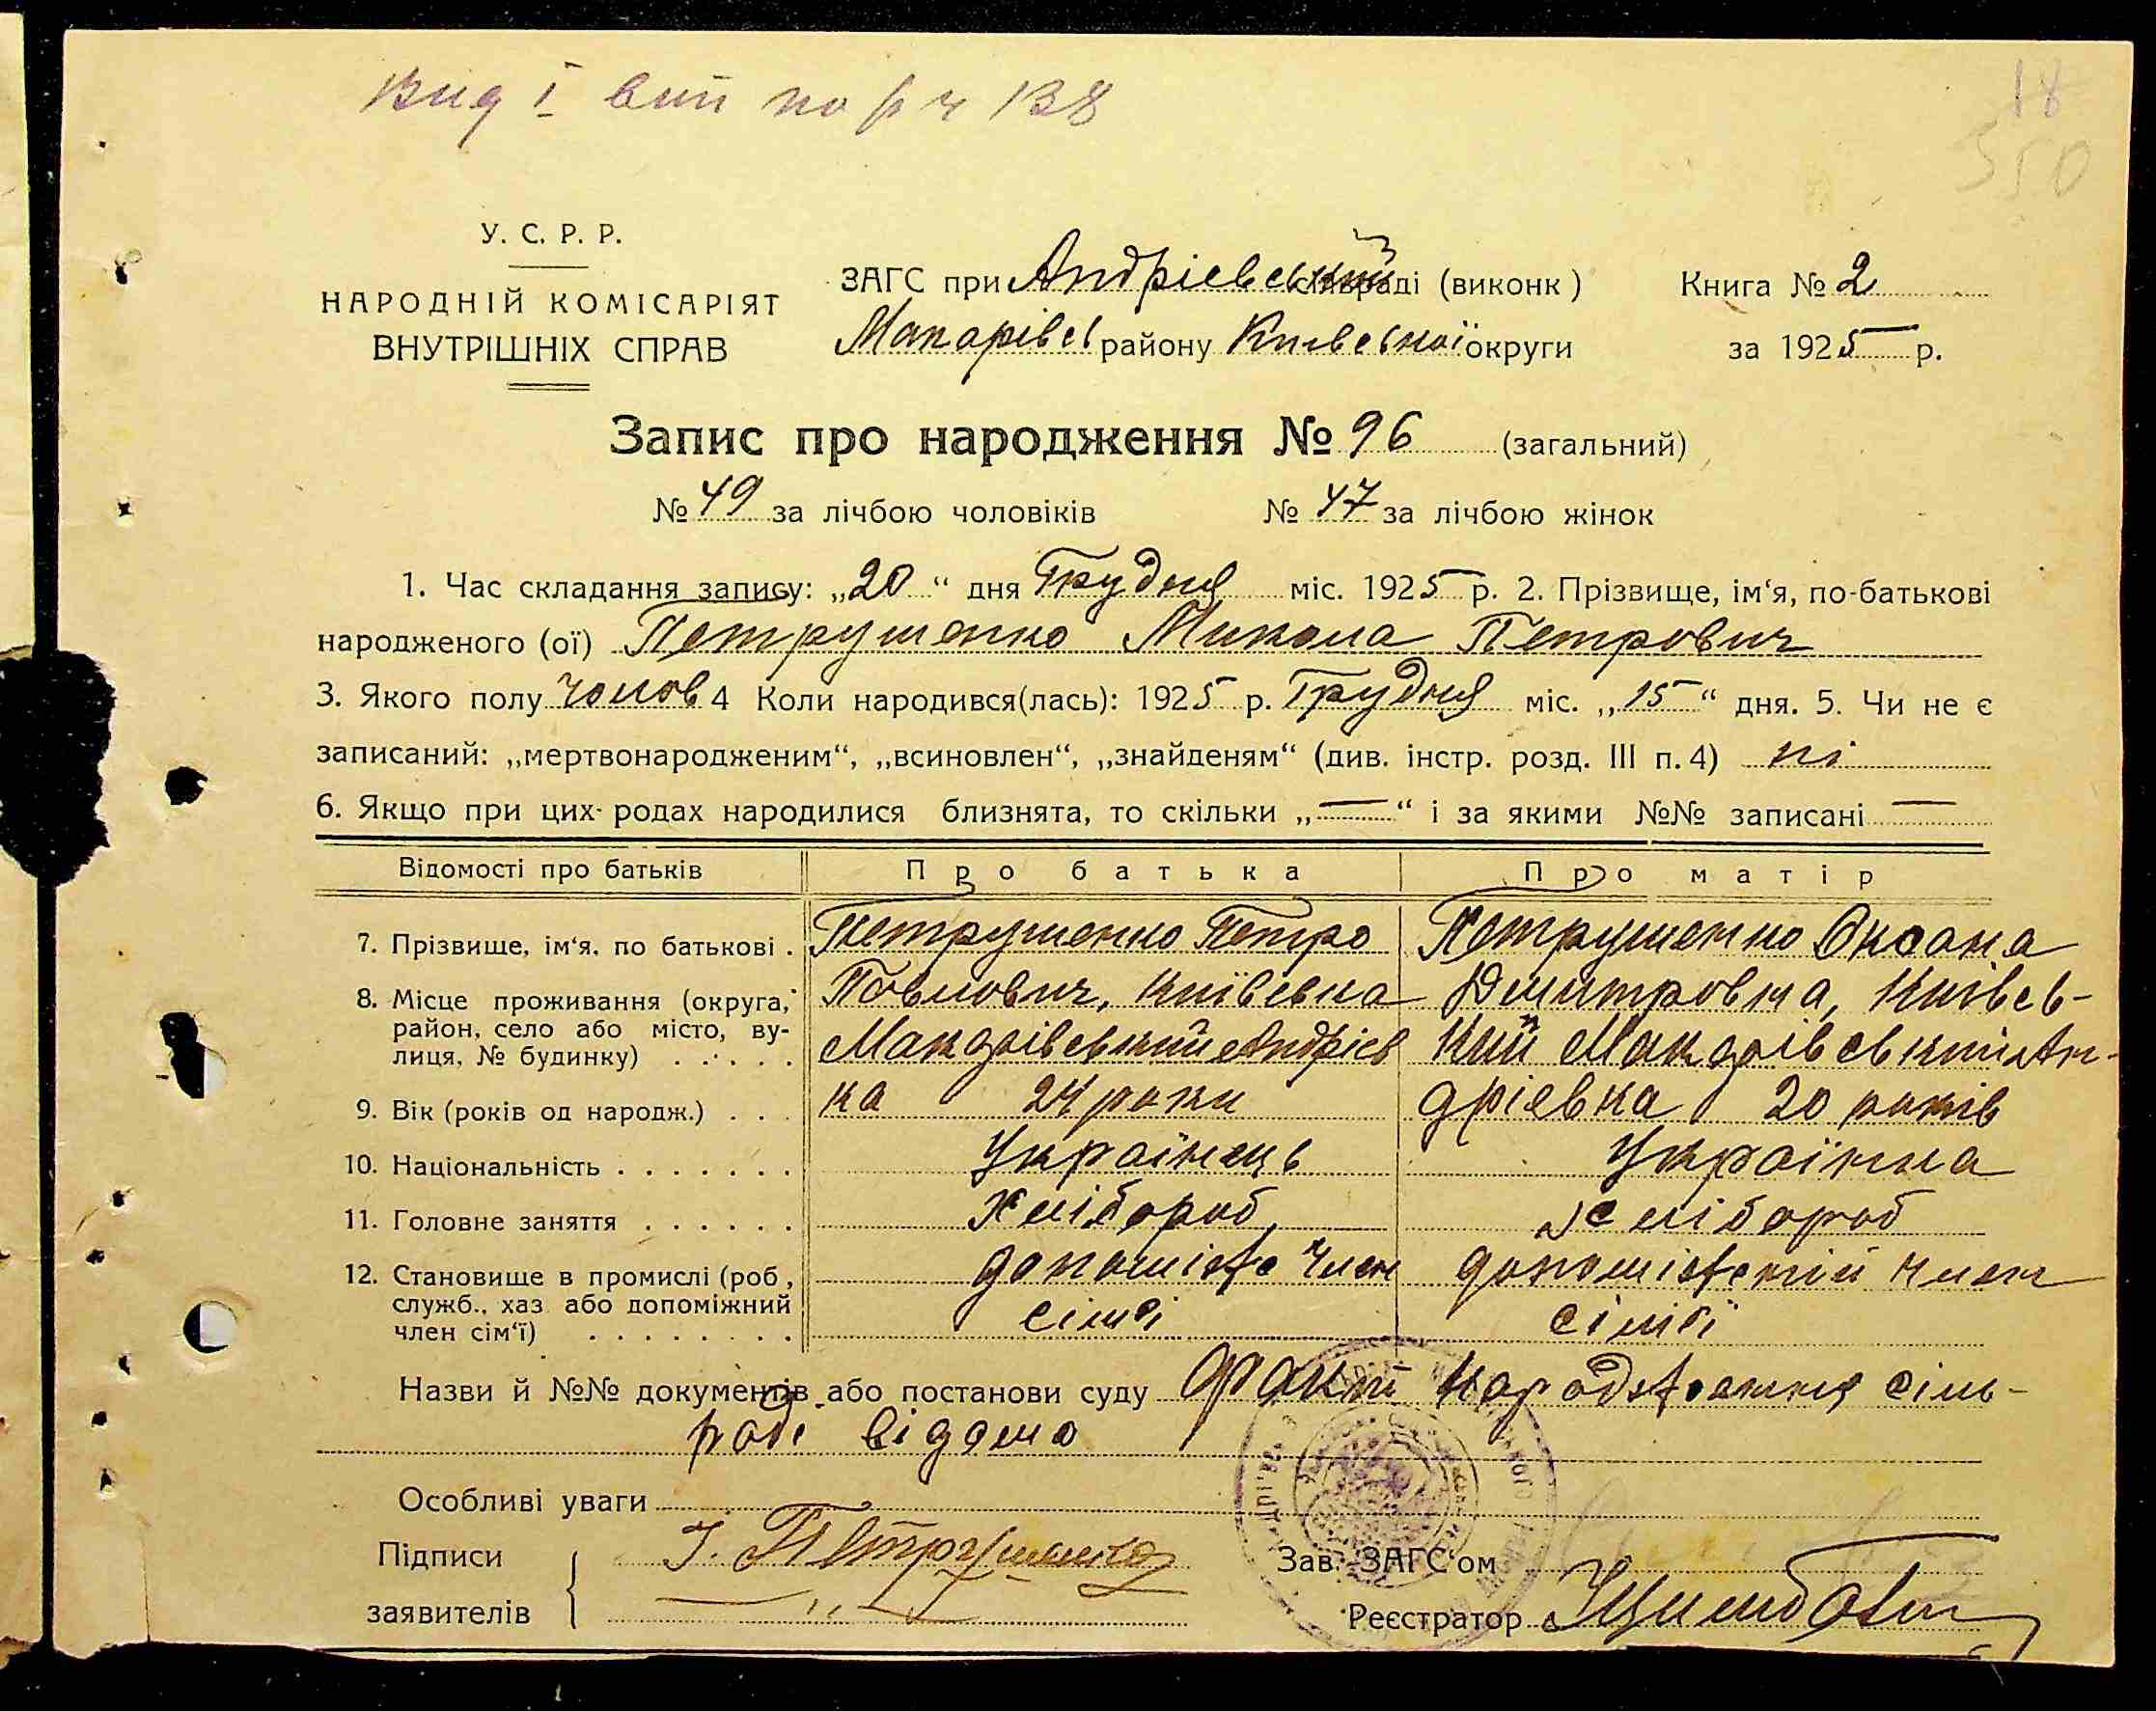 Вид І вип по р ч 138
18
550
У. С. Р. Р.
НАРОДНІЙ КОМІСАРІЯТ
ВНУТРІШНІХ СПРАВ
ЗАГС при Андрієвській сільраді (виконк)
Макарівсь району Київської округи
Книга № 2
за 1925 р.
Запис про народження № 96 (загальний)
№ 49 за лічбою чоловіків № 47 за лічбою жінок
1. Час складання запису: „20“ дня Грудня міс. 1925 р. 2. Прізвище, ім‘я, по-батькові
народженого (ої) Петрушенко Микола Петрович
3. Якого полу чолов 4 Коли народився(лась): 1925 р. Грудня міс. „15“ дня. 5. Чи не є
записаний: „мертвонародженим“, „всиновлен“, „знайденям“ (див. інстр. розд. III п. 4) ні
6. Якщо при цих родах народилися близнята, то скільки „—“ і за якими №№ записані —
Відомості про батьків Про батька Про матір
7. Прізвище, ім‘я, по батькові . Петрушенко Петро Петрушенко Оксана
8. Місце проживання (округа, Павлович, Київська Дмитровна, Київсь-
район, село або місто, ву-
лиця, № будинку) . . . . . Макарівський Андрієв кий Макарівський Ан-
9. Вік (років од народж.) . . . ка 24 роки дрієвка 20 років
10. Національність . . . . . . . Українець Українка
11. Головне заняття . . . . . . Хлібороб Хлібороб
12. Становище в промислі (роб, допоміжн член допоміжний член
служб., хаз або допоміжний
член сім‘ї) . . . . . . . . сімі сімї
Назви й №№ документів або постанови суду факт народження сіль-
раді відомо
Особливі уваги
Підписи
заявителів
І. Петрушенко
— „ —
Зав. ЗАГС‘ом
Реєстратор